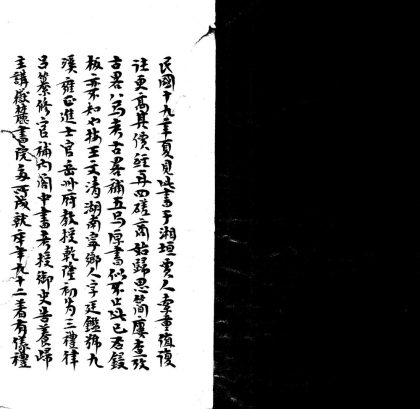 民國十九年夏見此書于湘垣賣人索重值復
往更高其價經再四磋商始歸思簡廬查攷
古畧八馬考古畧補五馬原書似不止此已否鋟
板亦不知也按王文清湖南寧鄉人字廷鑑號九
溪雍正進士官岳州府教授乾隆初為三禮律
呂纂修官補內閣中書考授御史告養歸
主講嶽麓書院多所成就卒年九十二著有儀禮